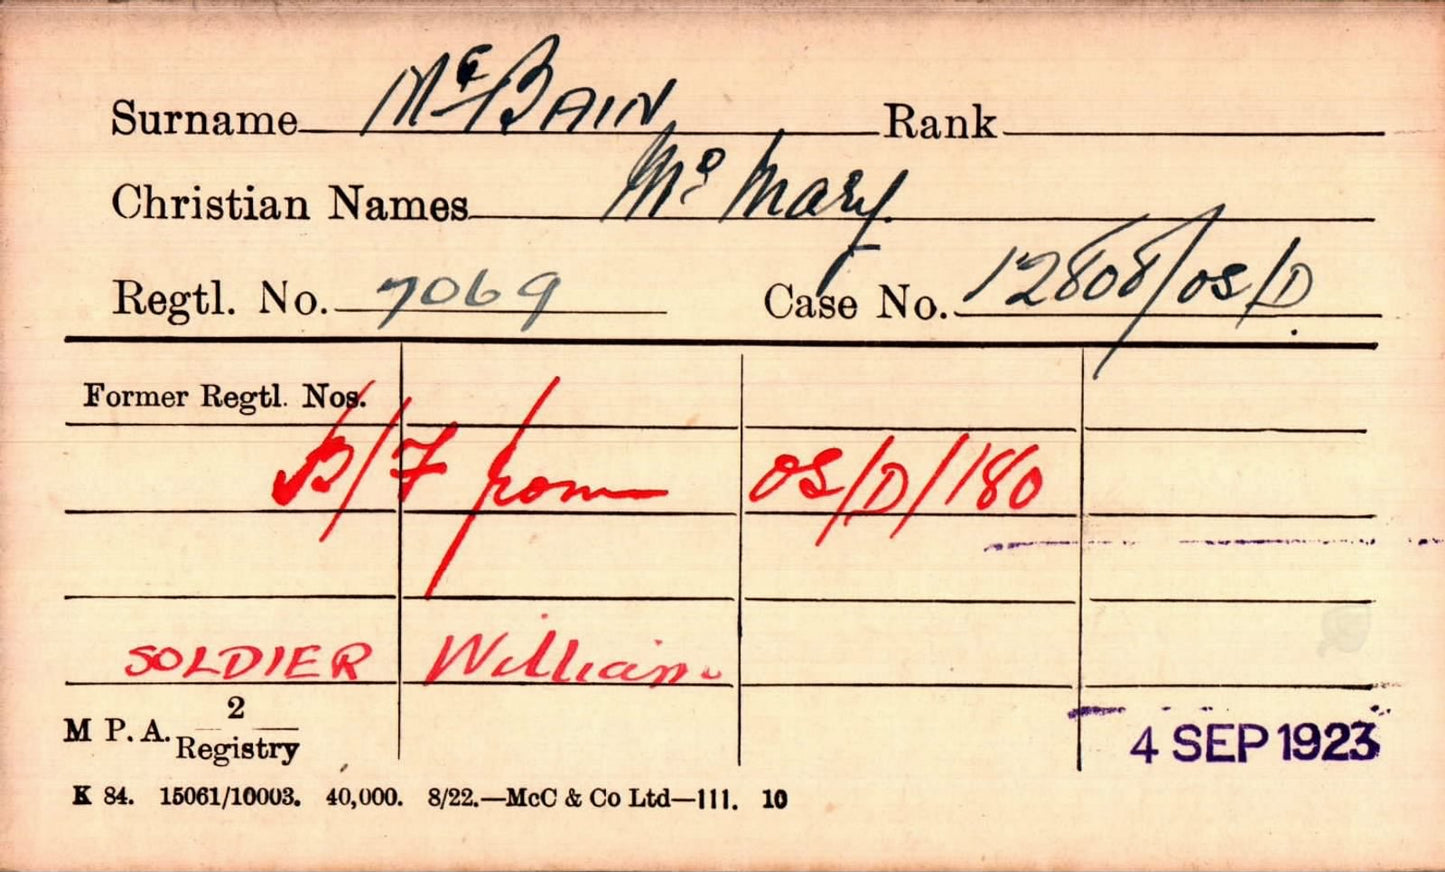 Surname McBAIN Rank
Christian Names Mrs Mary
Regtl. No. 7069 Case No. 12808/OS/D
Former Regtl. Nos.
B/F from OS/D/180
SOLDIER William
M P. A. 2 Registry
4 SEP 1923
K 84. 15061/10003. 40,000. 8/22.—McC & Co Ltd—111. 10